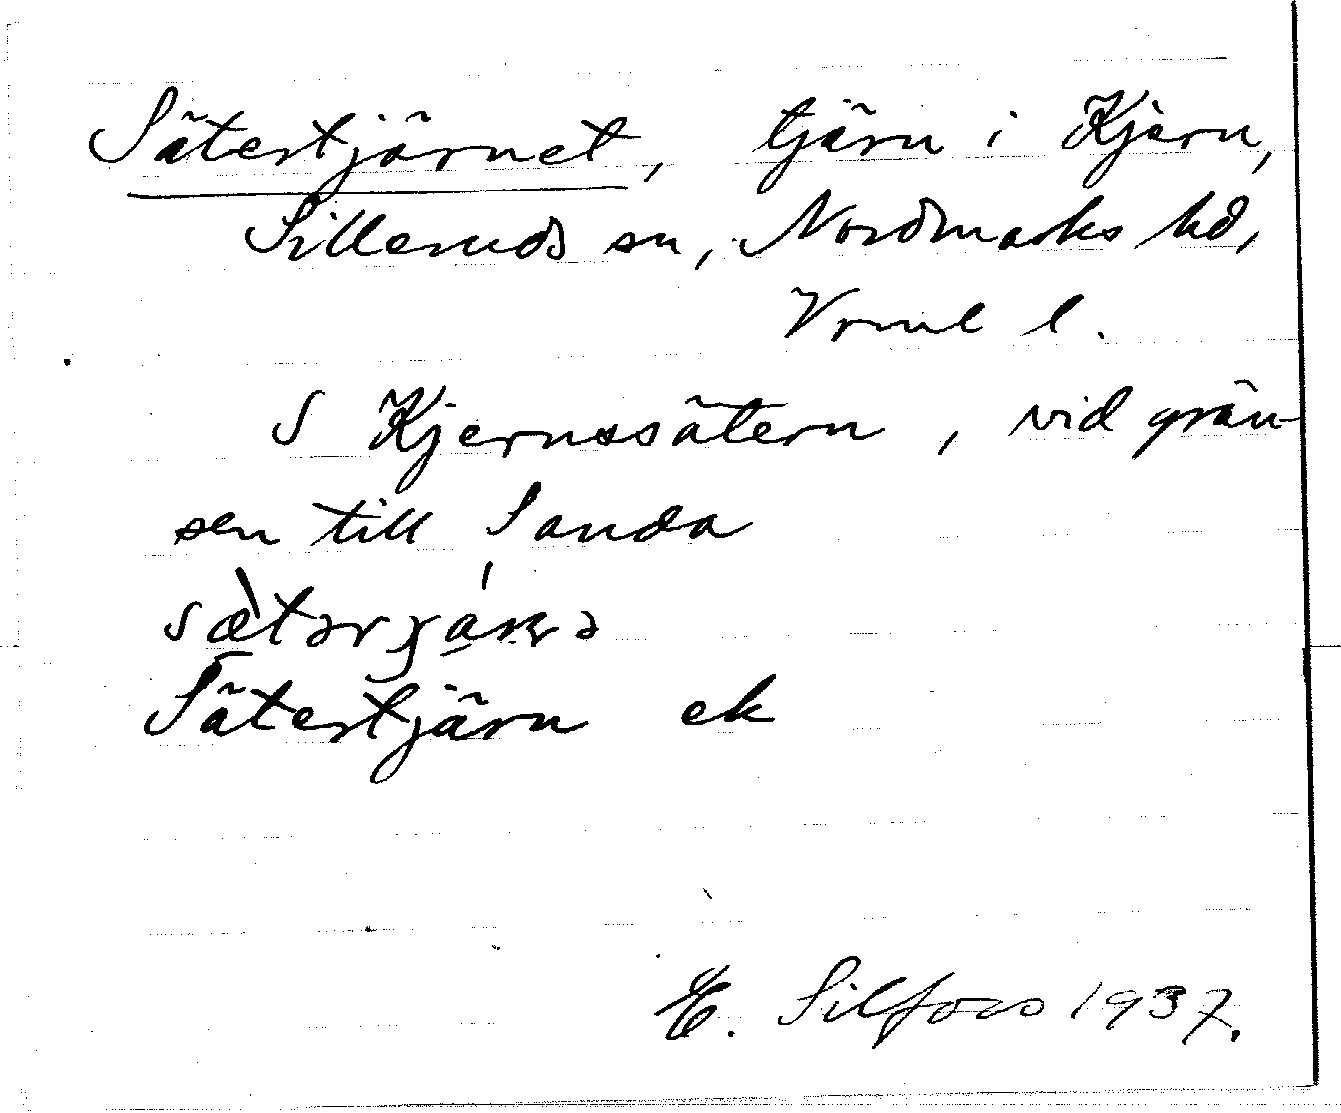 Sätertjärnet, tjärn i Kjern,
Silleruds sn, Nordmarks hd,
Vrml l.
S Kjernssätern, vid grän-
sen till Sanda
Sätertjärn ek
E. Silfors 1937.